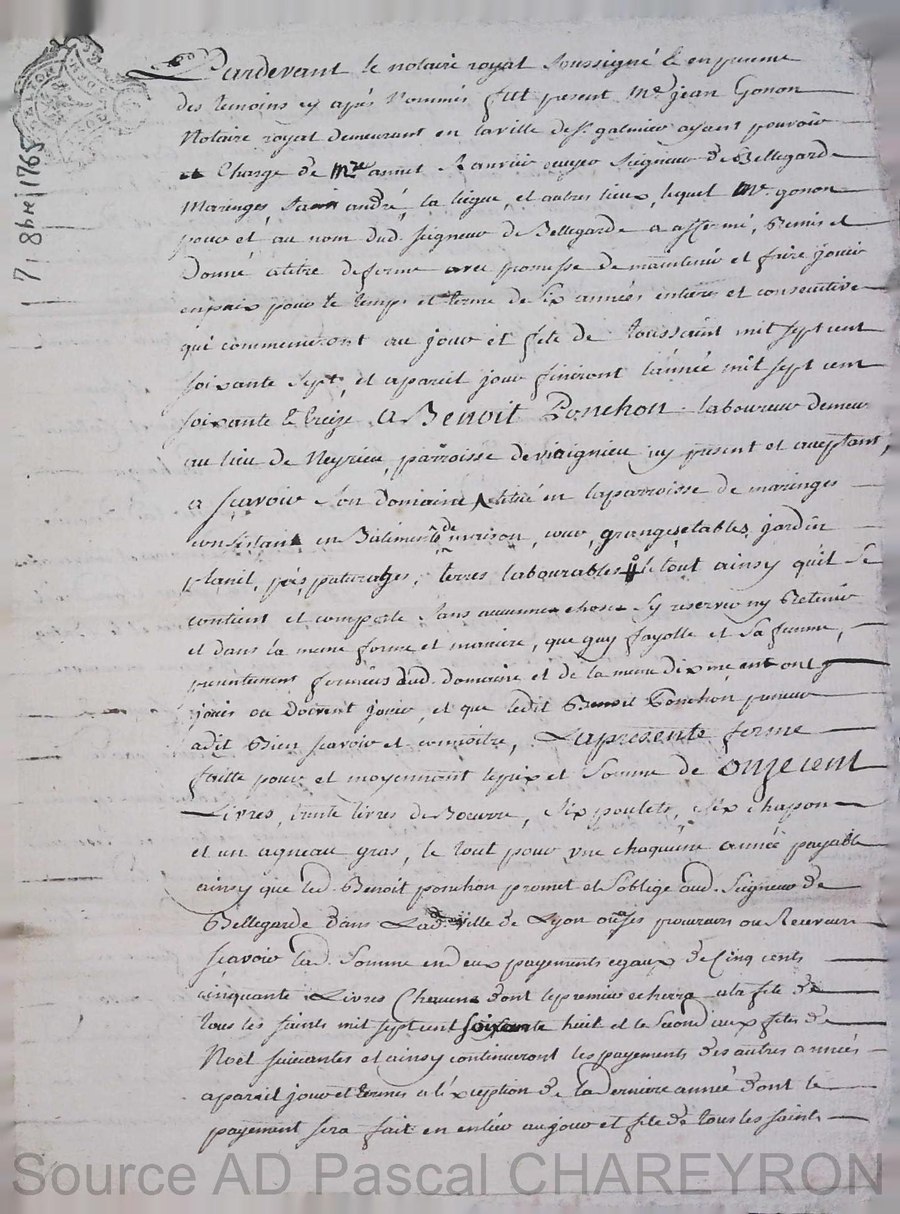 17 8bre 1765
Pardevant le notaire royal soussigné & en presence
des temoins cy aprés nommés fut present Me. jean Gonon
Notaire royal demeurant en la ville de St. galmier ayant pouvoir
et Charge de Mre annet Ranvier ecuyer Seigneur de Bellegarde
Maringes, Saint andré, la liegue, et autres lieux, lequel Me. gonon
pour et au nom dud. seigneur de Bellegarde a affermé, Remis et
Donné a titre de ferme avec promesse de maintenir et faire jouir
en paix pour le temps et terme de Six années entieres et consecutives
qui commenceront au jour et féte de toussaint mil sept cent
soixante sept, et a pareil jour finiront l'année mil sept cent
soixante & treize, A Benoit Ponchon laboureur demeur
au lieu de Neyrieu, parroisse de viriignieu icy present et acceptant,
a scavoir son domaine situé en la parroisse de maringes
consistant en Batiments de maison, cour, granges, etables, jardin
planil, prés, paturages, terres labourables le tout ainsy quil se
contient et comporte sans aucune chose s'y reserver ny Retenir
et dans la meme forme et maniere, que guy fayolle et Sa femme,
presentement fermiers dud. domaine et de la meme dixme en ont
jouis ou doivent jouir, et que ledit Benoit Ponchon preneur
a dit Bien scavoir et connoitre, La presente ferme
faitte pour et moyennant le prix et Somme de onze cent
Livres, trente livres de Beurre, Six poulets, Six chapon
et un agneau gras, le tout pour vne chaquune année payable
ainsy que led. Benoit ponchon promet et s'oblige aud. Seigneur de
Bellegarde dans Lad. ville de Lyon ou ses procureurs ou Receveurs
scavoir lad. Somme en deux payements egaux de Cinq cents
cinquante Livres Chacun dont le premier echerra a la féte de
tous les saints mil sept cent soixante huit et le Second aux fétes de
Noel suivantes et ainsy continueront les payements des autres années
a pareil jour et termes a l'exception de la derniere année dont le
payement sera fait en entier au jour et féte de tous les saints
Source AD Pascal CHAREYRON